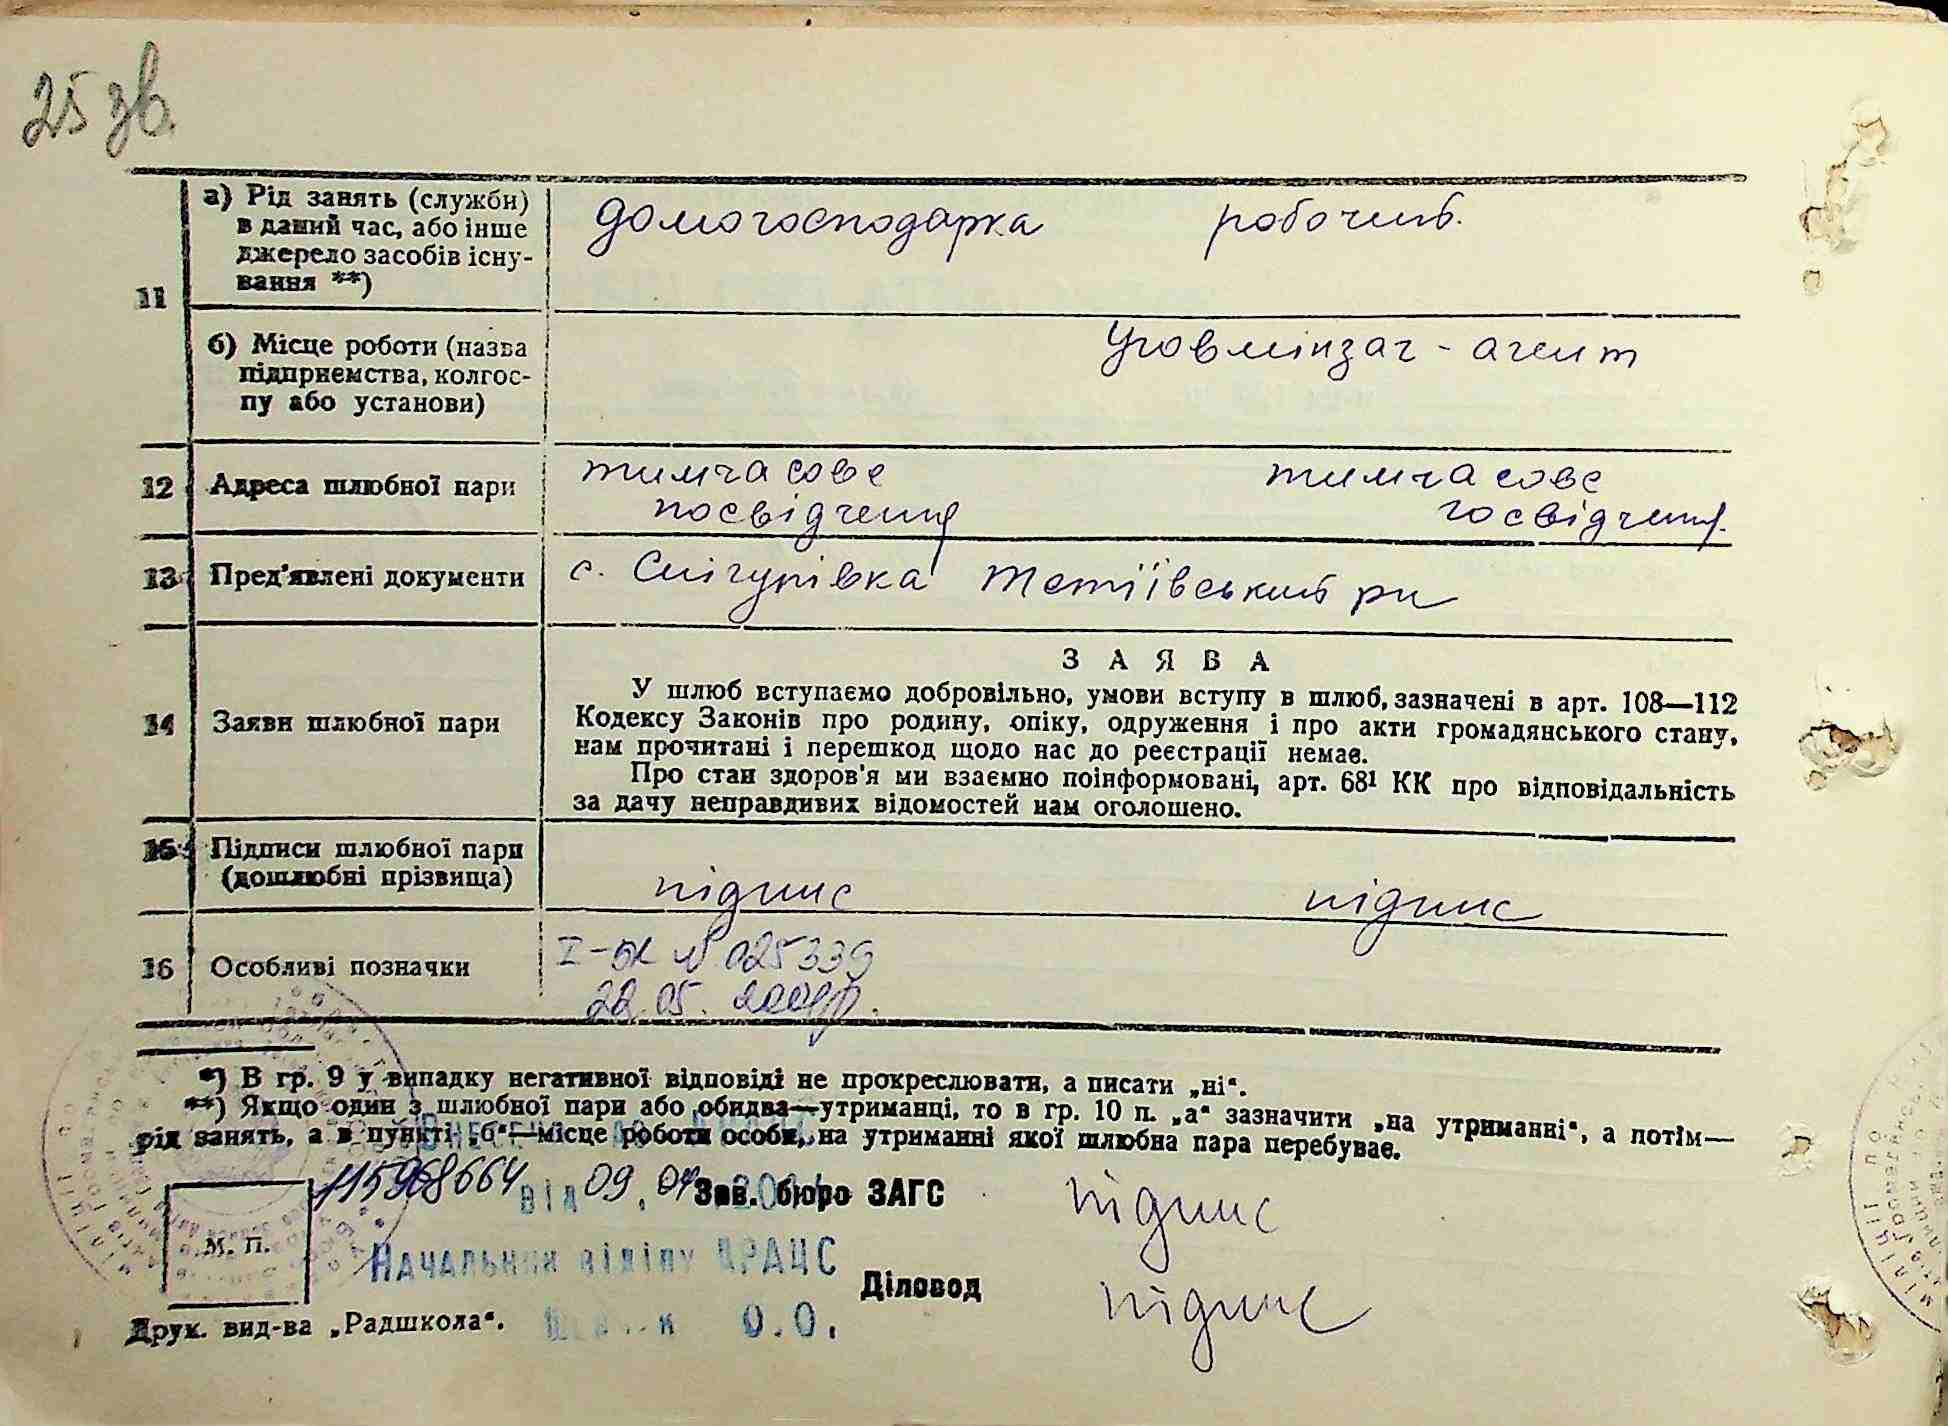 25 зв.
11
а) Рід занять (служби)
в даний час, або інше
джерело засобів існу-
вання **)
домогосподарка робочий.
б) Місце роботи (назва
підприємства, колгос-
пу або установи)
Уповмінзаг - агент
12 Адреса шлюбної пари
тимчасове тимчасове
посвідчення посвідчення.
13 Пред'явлені документи
с. Снігурівка Тетіївський рн
14 Заяви шлюбної пари
ЗАЯВА
У шлюб вступаємо добровільно, умови вступу в шлюб, зазначені в арт. 108—112
Кодексу Законів про родину, опіку, одруження і про акти громадянського стану,
нам прочитані і перешкод щодо нас до реєстрації немає.
Про стан здоров'я ми взаємно поінформовані, арт. 68¹ КК про відповідальність
за дачу неправдивих відомостей нам оголошено.
15 Підписи шлюбної пари
(дошлюбні прізвища)
підпис підпис
16 Особливі позначки
І-БК № 025339
22.05.
*) В гр. 9 у випадку негативної відповіді не прокреслювати, а писати „ні“.
**) Якщо один з шлюбної пари або обидва—утриманці, то в гр. 10 п. „а“ зазначити „на утриманні“, а потім—
рід занять, а в пункті „б“—місце роботи особи, на утриманні якої шлюбна пара перебуває.
115968664 від 09.04
Зав. бюро ЗАГС підпис
М. П.
Начальник відділу ДРАЦС
Діловод підпис
О.О.
Друк. вид-ва „Радшкола“.